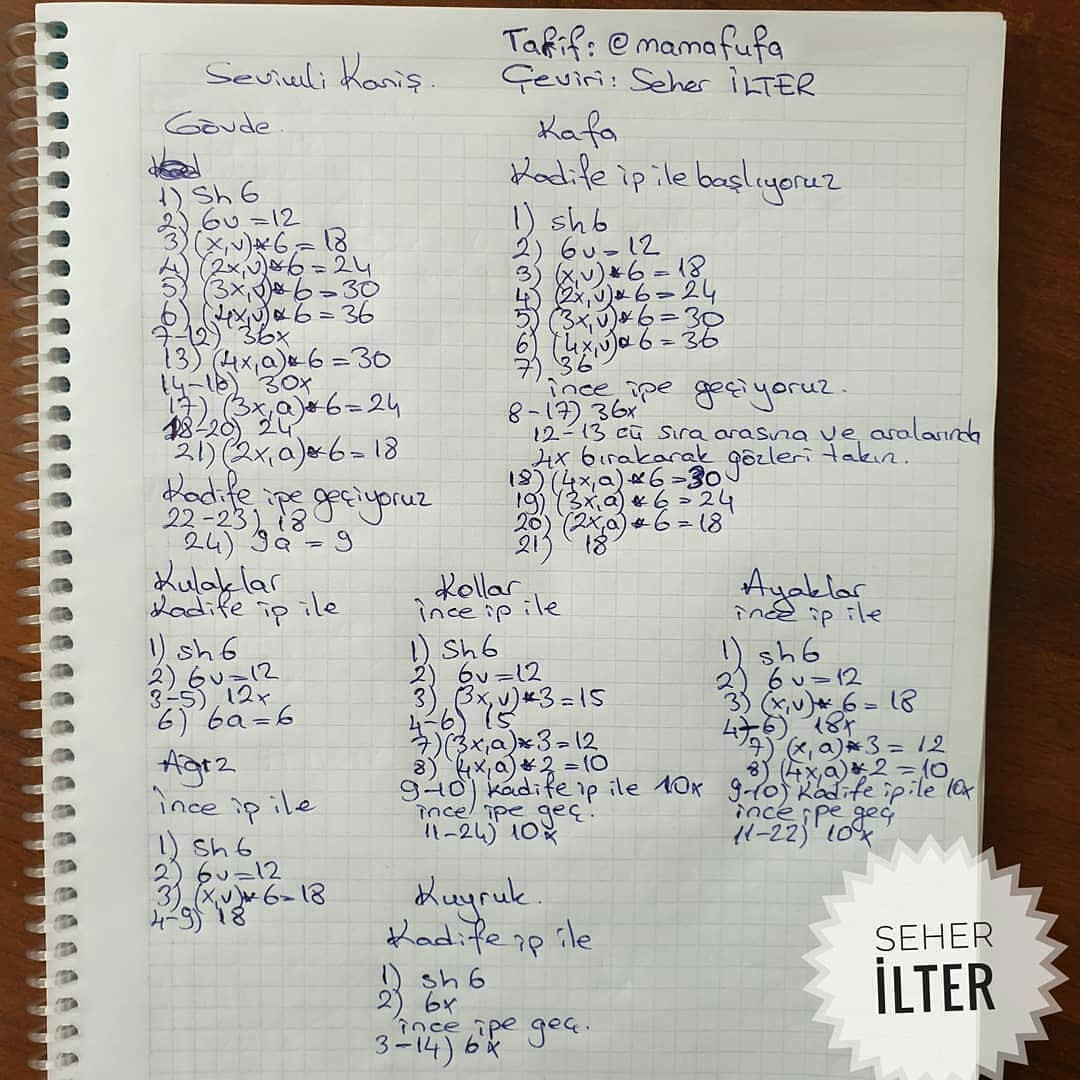 Tarif: @mamafufa
Sevimli Kaniş.
Çeviri: Seher İLTER
Gövde.
1) Sh 6
2) 6v = 12
3) (x,v)*6 = 18
4) (2x,v)*6 = 24
5) (3x,v)*6 = 30
6) (4x,v)*6 = 36
7-12) 36x
13) (4x,a)*6 = 30
14-16) 30x
17) (3x,a)*6 = 24
18-20) 24
21) (2x,a)*6 = 18
Kadife ipe geçiyoruz
22-23) 18
24) 9a = 9
Kafa
Kadife ip ile başlıyoruz
1) sh 6
2) 6v = 12
3) (x,v)*6 = 18
4) (2x,v)*6 = 24
5) (3x,v)*6 = 30
6) (4x,v)*6 = 36
7) 36
ince ipe geçiyoruz.
8-17) 36x
12-13 cü sıra arasına ve aralarında
4x bırakarak gözleri takın.
18) (4x,a)*6 = 30
19) (3x,a)*6 = 24
20) (2x,a)*6 = 18
21) 18
Kulaklar
Kadife ip ile
1) sh 6
2) 6v = 12
3-5) 12x
6) 6a = 6
Ağız
ince ip ile
1) Sh 6
2) 6v = 12
3) (x,v)*6 = 18
4-9) 18
Kollar
ince ip ile
1) Sh 6
2) 6v = 12
3) (3x,v)*3 = 15
4-6) 15
7) (3x,a)*3 = 12
8) (4x,a)*2 = 10
9-10) kadife ip ile 10x
ince ipe geç.
11-24) 10x
Kuyruk.
Kadife ip ile
1) sh 6
2) 6x
ince ipe geç.
3-14) 6x
Ayaklar
ince ip ile
1) sh 6
2) 6v = 12
3) (x,v)*6 = 18
4-6) 18x
7) (x,a)*3 = 12
8) (4x,a)*2 = 10
9-10) Kadife ip ile 10x
ince ipe geç
11-22) 10x
SEHER
İLTER